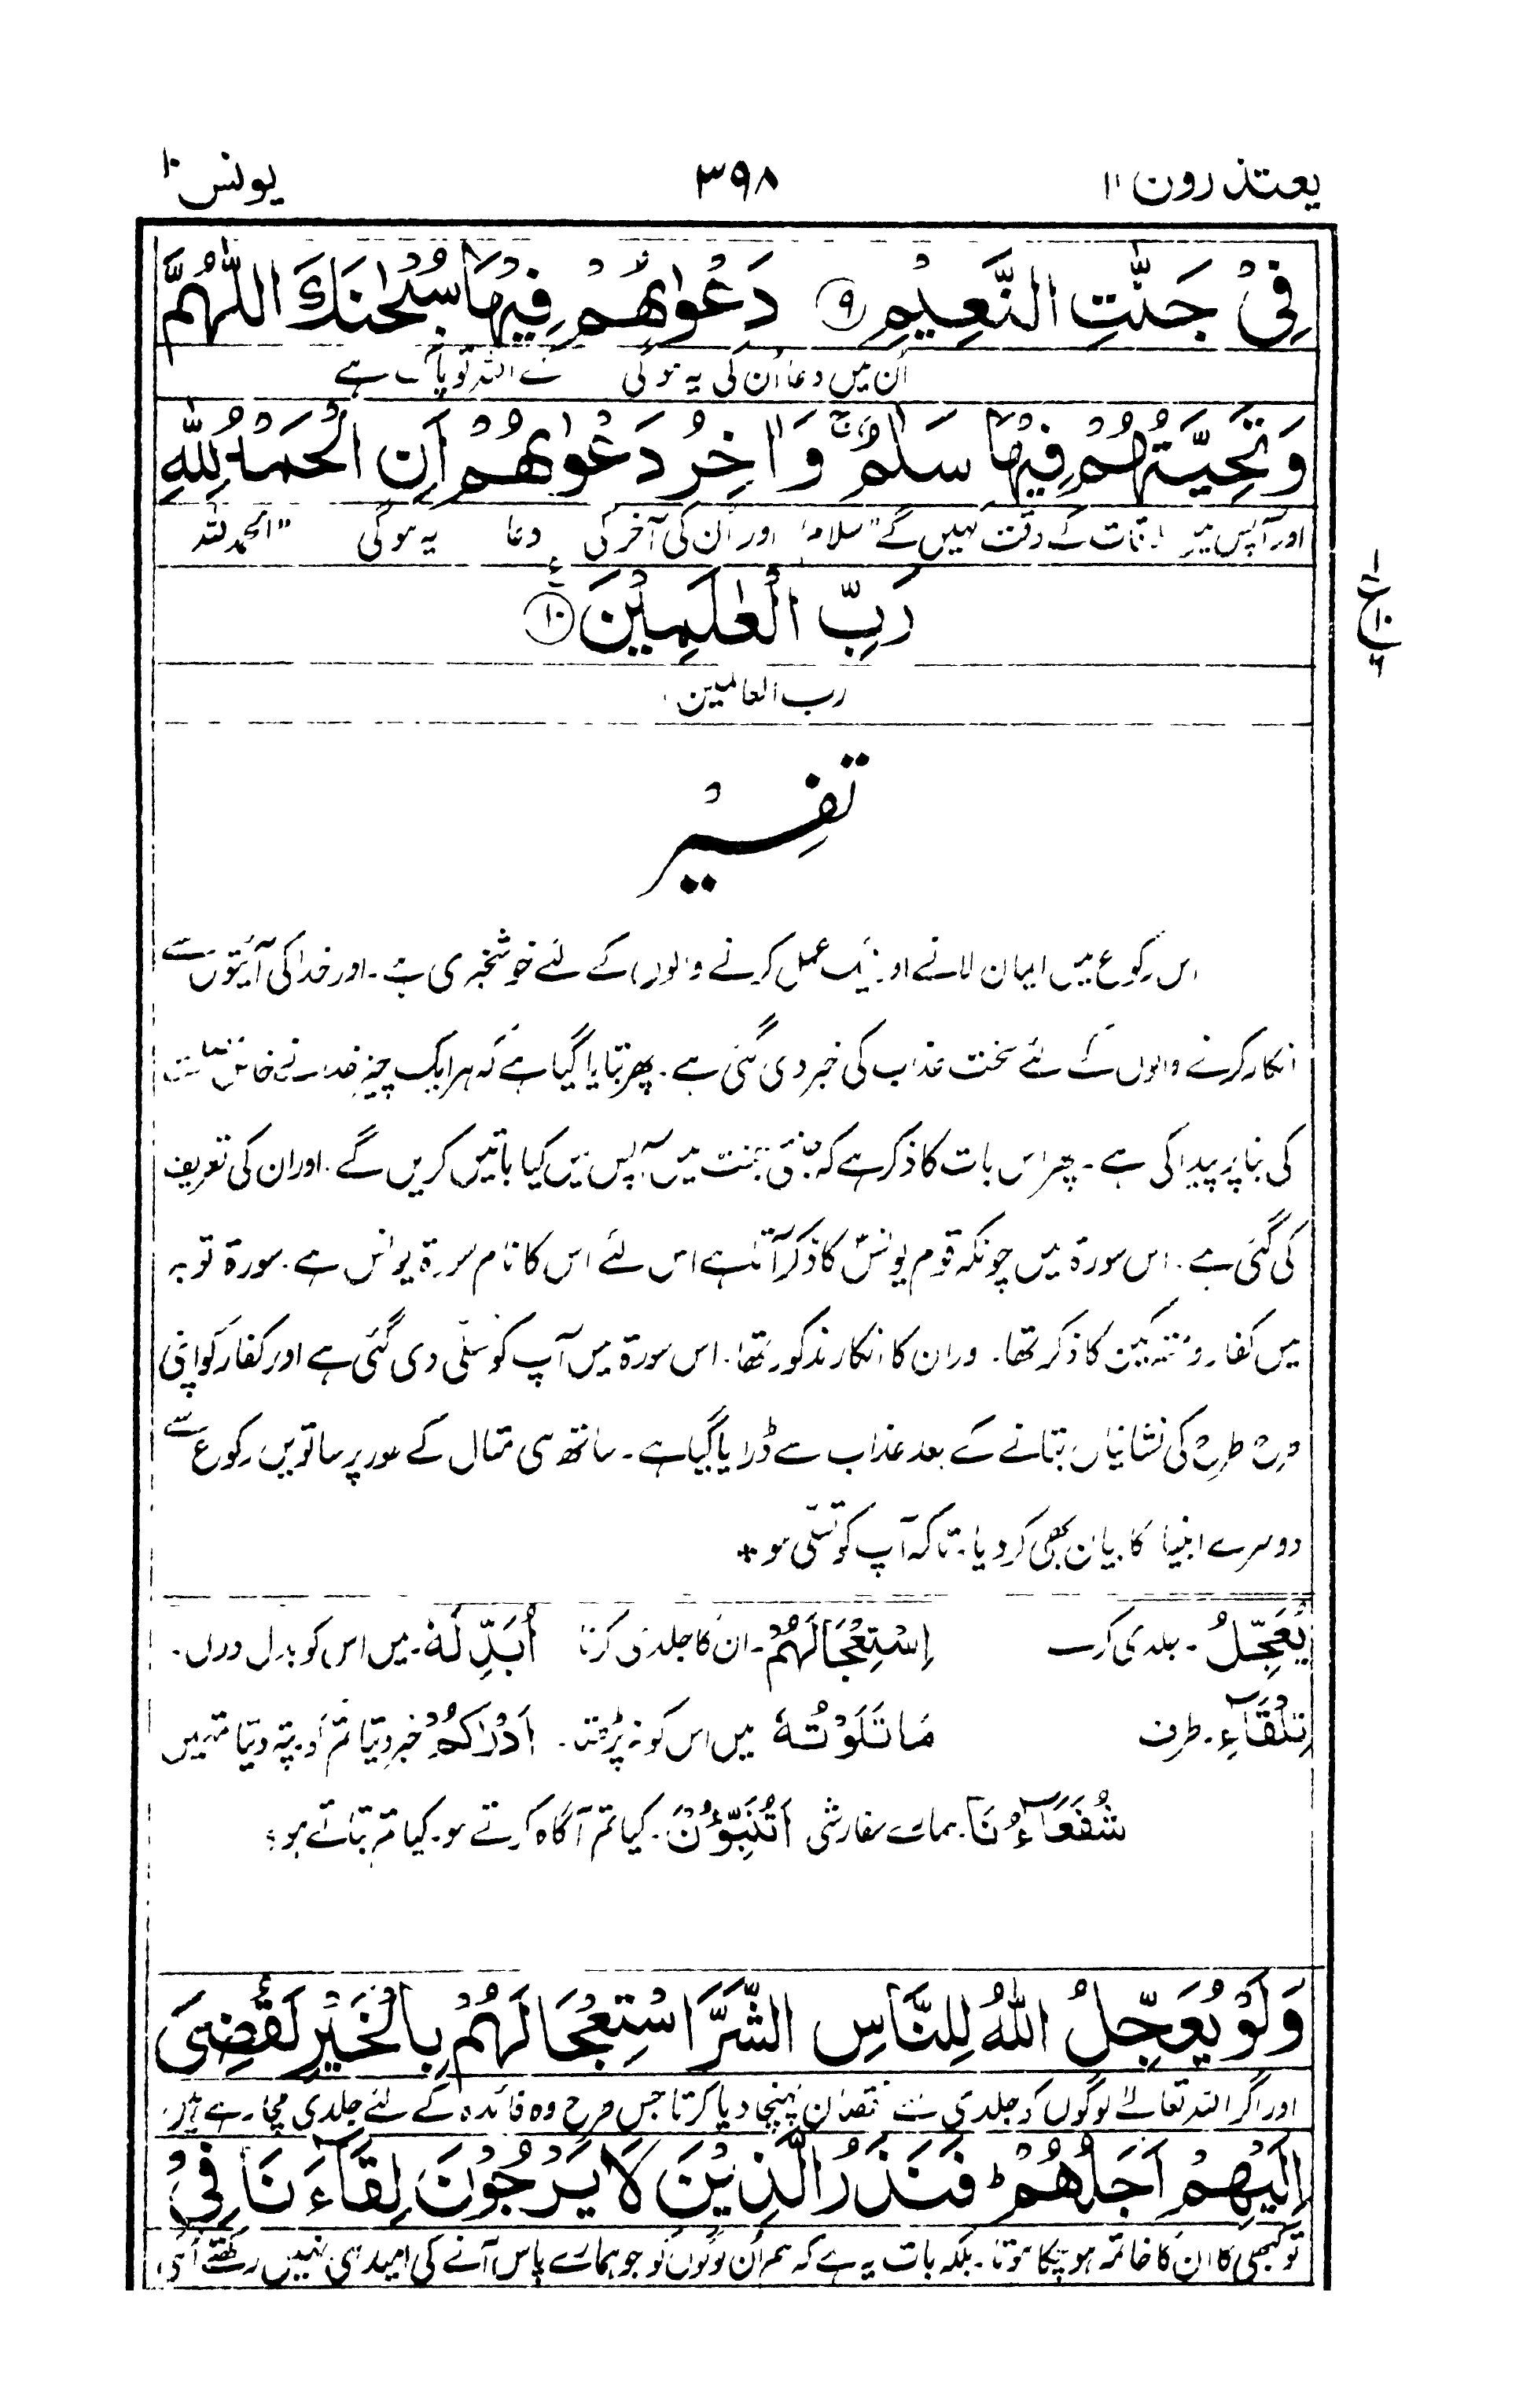 یعتذرون ۱۱ ۳۹۸ یونس ۱۰
فِیْ جَنّٰتِ النَّعِیْمِ ۹ دَعْوٰىهُمْ فِیْهَا سُبْحٰنَكَ اللّٰهُمَّ
اُن میں دعا اُن کی یہ ہوگی اے اللہ تو پاک ہے
وَتَحِیَّتُهُمْ فِیْهَا سَلٰمٌ ۚ وَاٰخِرُ دَعْوٰىهُمْ اَنِ الْحَمْدُ لِلّٰهِ
اور آپس میں ملاقات کے وقت کہیں گے "سلام" اور اُن کی آخر کی دعا یہ ہوگی "الحمد للہ
رَبِّ الْعٰلَمِیْنَ ۱۰
۱ ع ۱۰ ۶
رب العالمین
تفسِیْر
اس رکوع میں ایمان لانے اور نیک عمل کرنے والوں کے لئے خوشخبری ہے۔ اور خدا کی آیتوں سے
انکار کرنے والوں کے لئے سخت عذاب کی خبر دی گئی ہے۔ پھر بتایا گیا ہے کہ ہر ایک چیز خدا نے خاص
کی بنا پر پیدا کی ہے۔ پھر اس بات کا ذکر ہے کہ جنتی جنت میں آپس میں کیا باتیں کریں گے۔ اور ان کی تعریف
کی گئی ہے۔ اس سورۃ میں چونکہ قوم یونسؑ کا ذکر آتا ہے اس لئے اس کا نام سورۃ یونس ہے۔ سورۃ توبہ
میں کفار و مشرکین کا ذکر تھا۔ اور ان کا انکار مذکور تھا۔ اس سورۃ میں آپ کو تسلّی دی گئی ہے اور کفار کو اپنی
طرح طرح کی نشانیاں بتانے کے بعد عذاب سے ڈرایا گیا ہے۔ ساتھ ہی مثال کے طور پر ساتویں رکوع سے
دوسرے انبیا کا بیان بھی کر دیا۔ تاکہ آپ کو تسلّی ہو
یُعَجِّلُ۔ جلدی کرے اِسْتِعْجَالَهُمْ۔ ان کا جلدی کرنا اُبَدِّلَهٗ۔ میں اس کو بدل دوں۔
تِلْقَآءِ۔ طرف مَا تَلَوْتُهٗ میں اس کو نہ پڑھتا۔ اَدْرٰىكُمْ خبر دیتا تم کو۔ پتہ دیتا تمہیں
شُفَعَآءُنَا۔ ہمارے سفارشی اَتُنَبِّؤُنَ۔ کیا تم آگاہ کرتے ہو۔ کیا تم بتاتے ہو؟
وَلَوْ یُعَجِّلُ اللّٰهُ لِلنَّاسِ الشَّرَّ اسْتِعْجَالَهُمْ بِالْخَیْرِ لَقُضِیَ
اور اگر اللہ تعالےٰ لوگوں کو جلدی سے نقصان پہنچا دیا کرتا جس طرح وہ فائدہ کے لئے جلدی مچا رہے ہیں
اِلَیْهِمْ اَجَلُهُمْ ؕ فَنَذَرُ الَّذِیْنَ لَا یَرْجُوْنَ لِقَآءَنَا فِیْ
تو کبھی کا ان کا خاتمہ ہو چکا ہوتا۔ بلکہ بات یہ ہے کہ ہم اُن لوگوں کو جو ہمارے پاس آنے کی امید ہی نہیں رکھتے